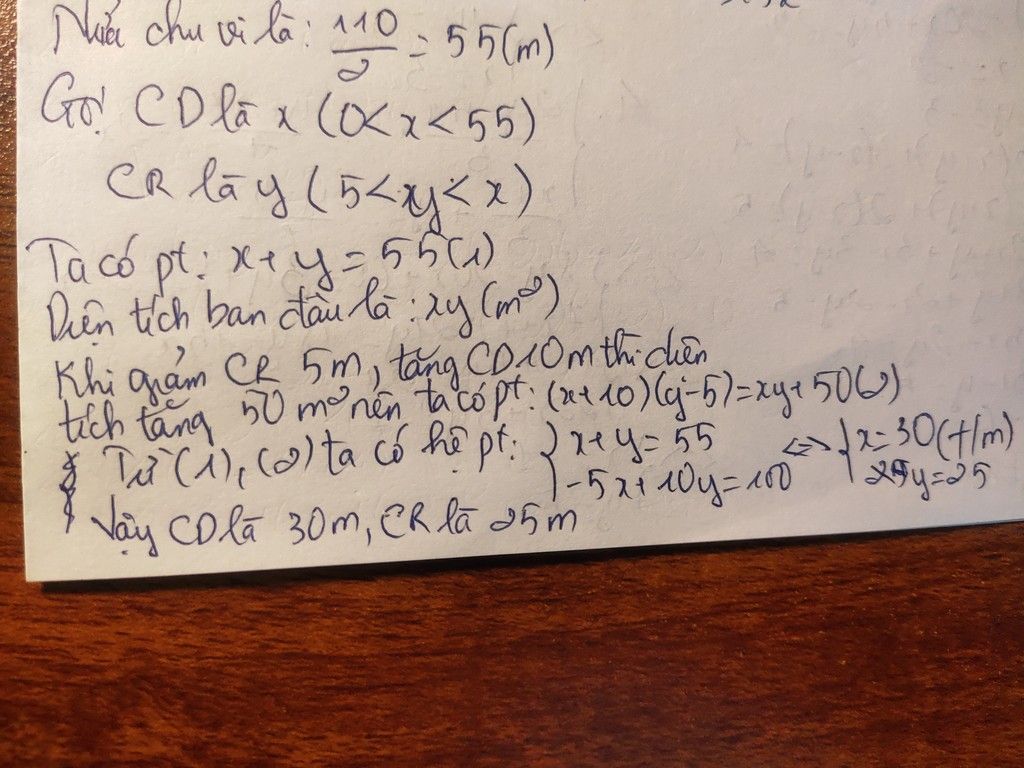 Nửa chu vi là: 110/2 = 55(m)
Gọi CD là x (0 < x < 55)
CR là y (5 < y < x)
Ta có pt: x + y = 55 (1)
Diện tích ban đầu là: xy (m²)
Khi giảm CR 5m, tăng CD 10m thì diện
tích tăng 50 m² nên ta có pt: (x+10)(y-5) = xy + 50 (2)
Từ (1), (2) ta có hệ pt: { x + y = 55 <=> { x = 30 (t/m)
-5x + 10y = 100 y = 25
Vậy CD là 30m, CR là 25m